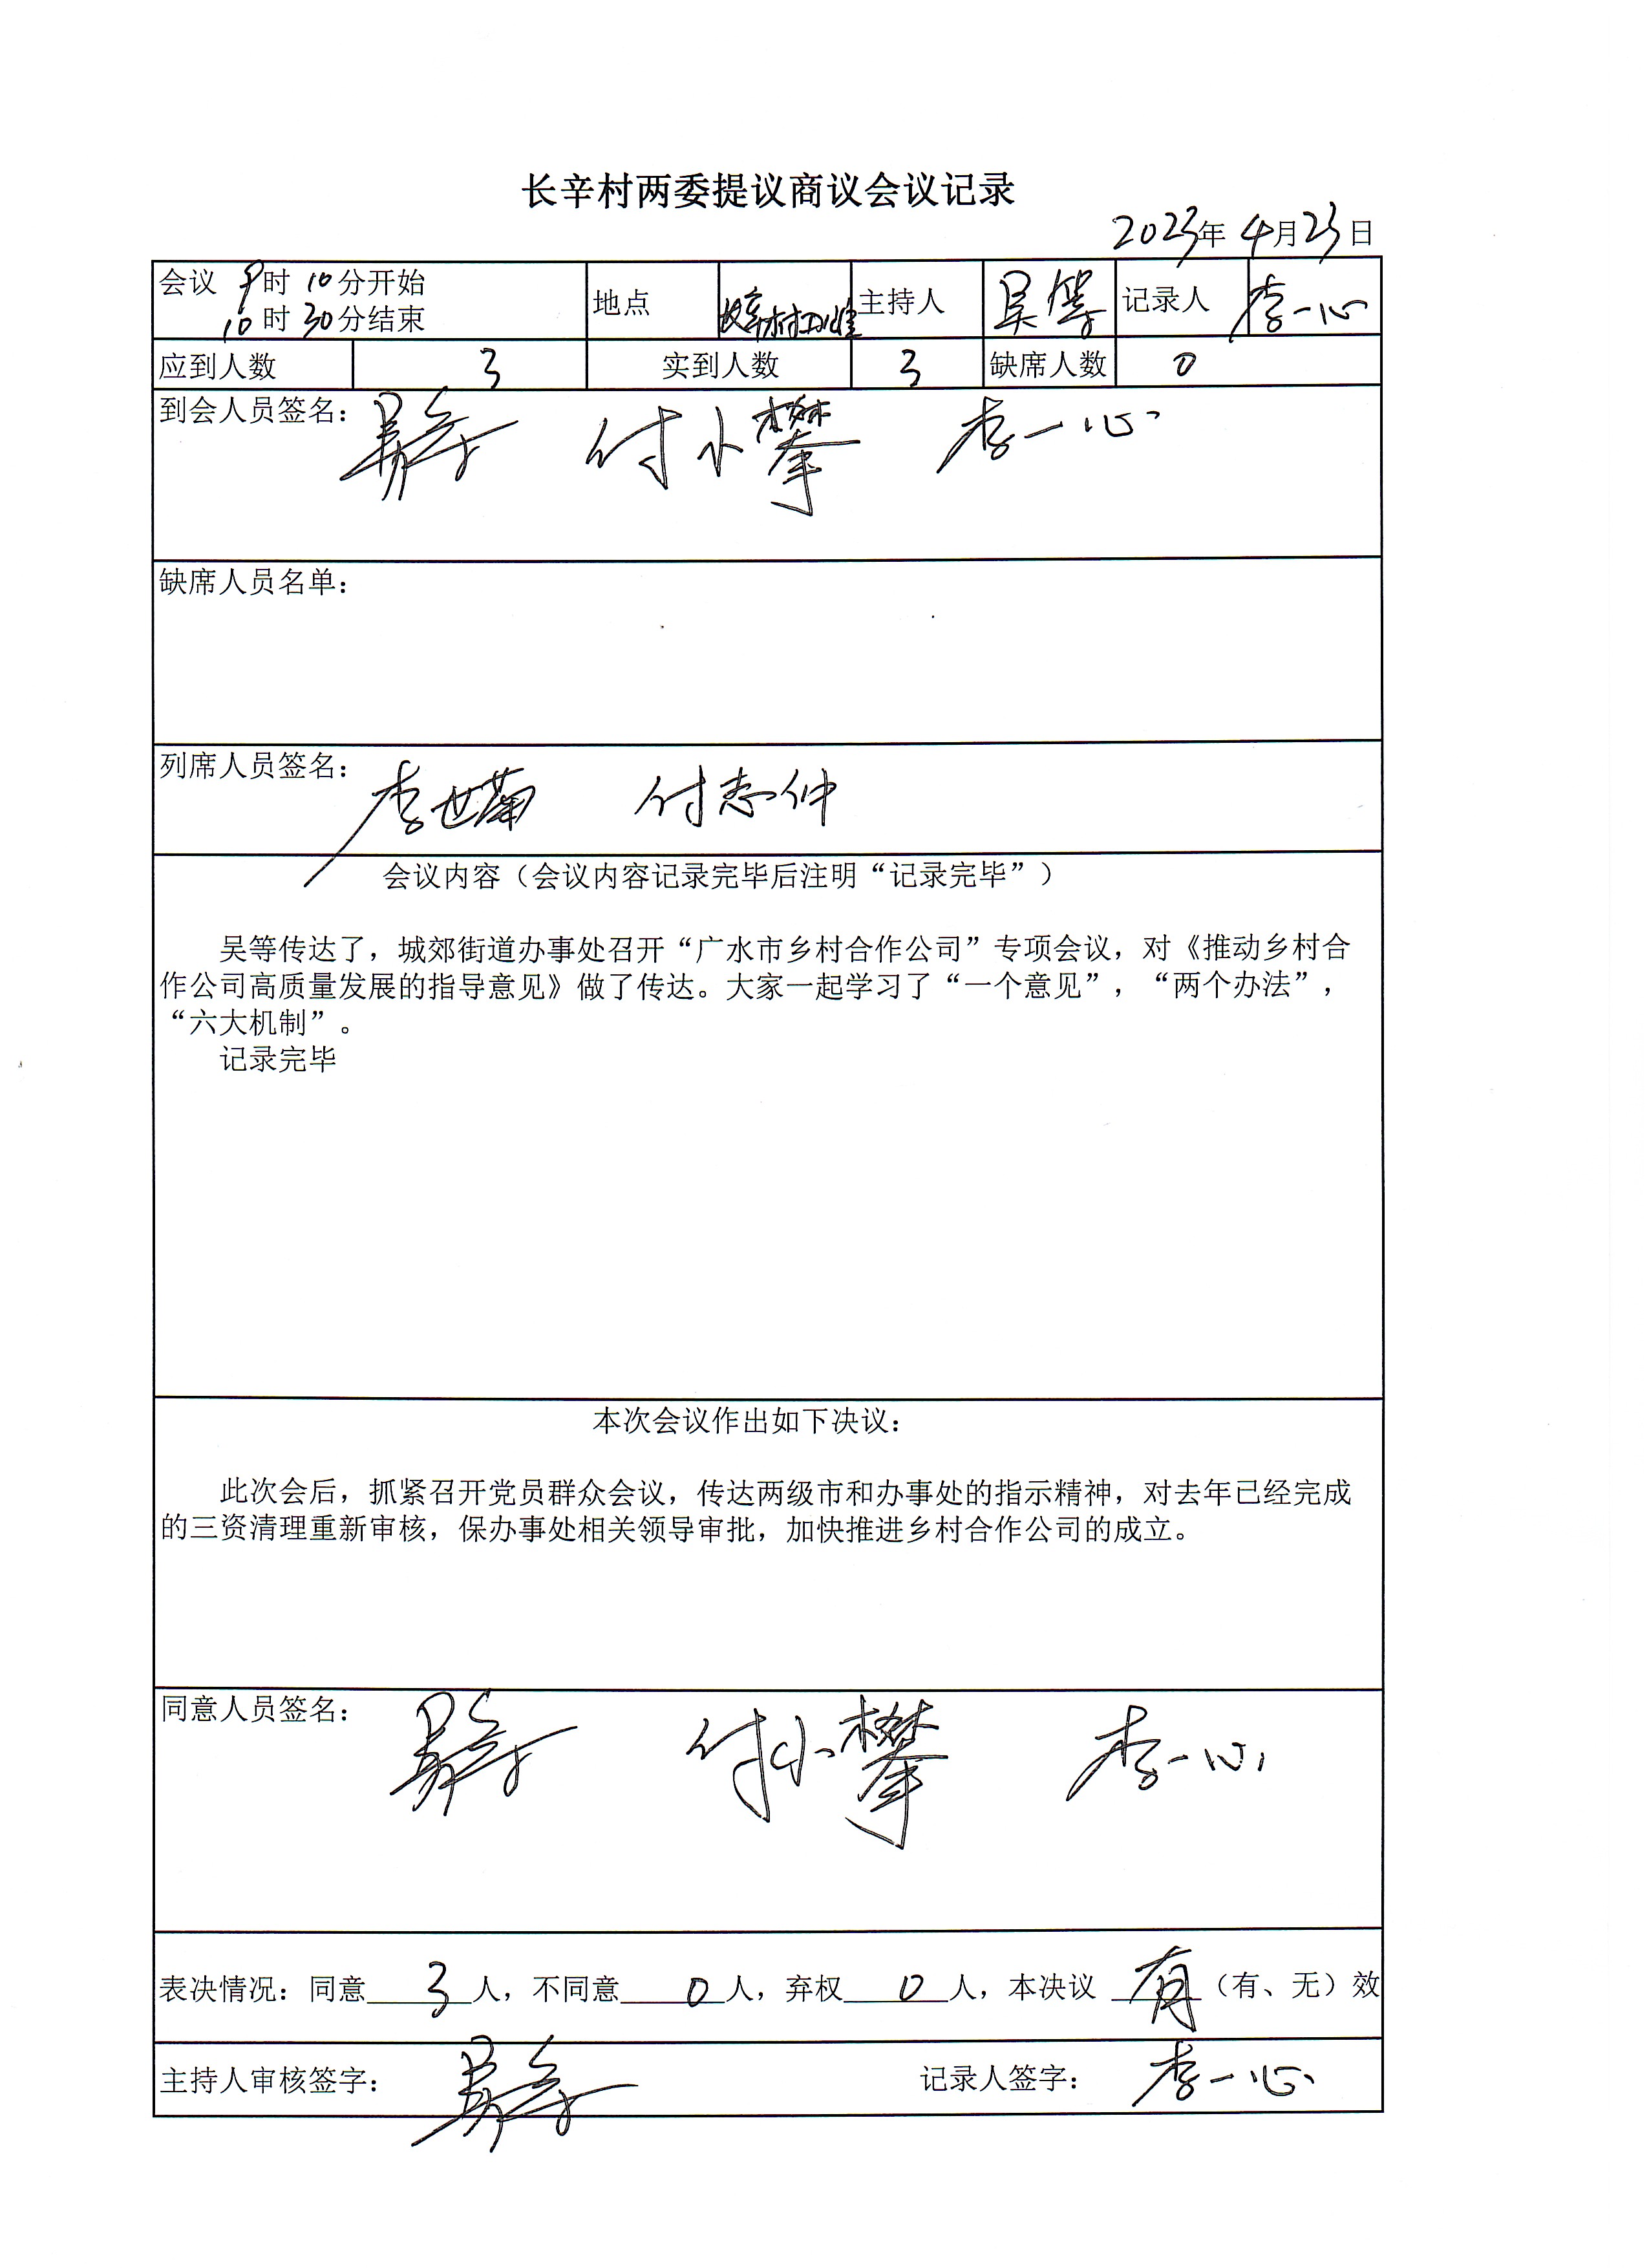 长辛村两委提议商议会议记录
2023年 4月23日
会议 9时 10分开始
10时 30分结束
地点 长辛村 主持人 吴等 记录人 李一心
应到人数 3 实到人数 3 缺席人数 0
到会人员签名： 吴等 付小攀 李一心
缺席人员名单：
列席人员签名： 李世菊 付志仲
会议内容（会议内容记录完毕后注明“记录完毕”）
吴等传达了，城郊街道办事处召开“广水市乡村合作公司”专项会议，对《推动乡村合
作公司高质量发展的指导意见》做了传达。大家一起学习了“一个意见”，“两个办法”，
“六大机制”。
记录完毕
本次会议作出如下决议：
此次会后，抓紧召开党员群众会议，传达两级市和办事处的指示精神，对去年已经完成
的三资清理重新审核，保办事处相关领导审批，加快推进乡村合作公司的成立。
同意人员签名： 吴等 付小攀 李一心
表决情况：同意 3 人，不同意 0 人，弃权 0 人，本决议 有 （有、无）效
主持人审核签字： 吴等 记录人签字： 李一心